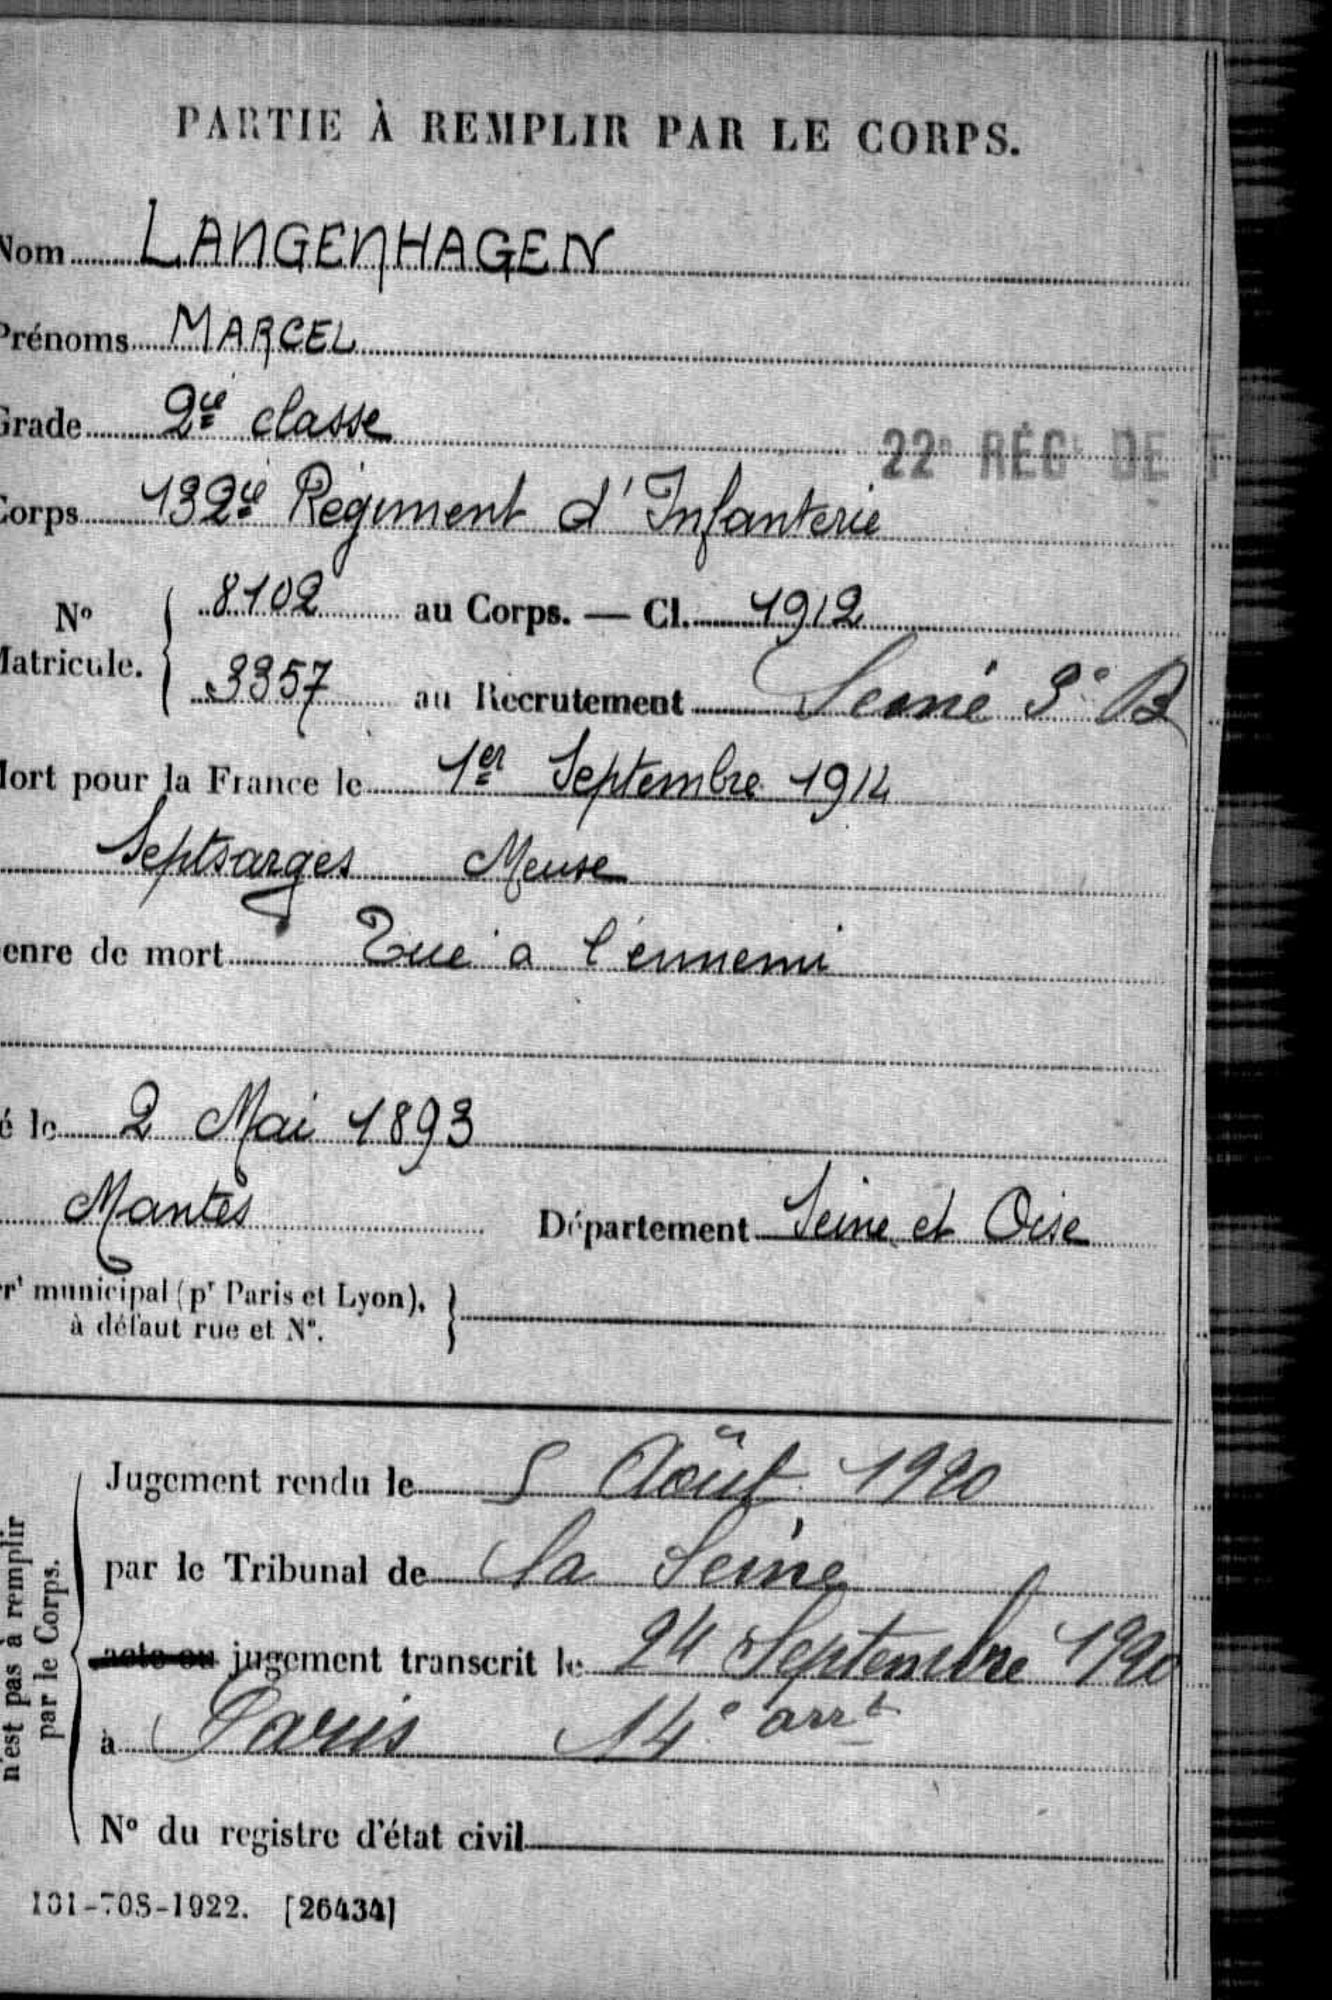 PARTIE À REMPLIR PAR LE CORPS.
Nom LANGENHAGEN
Prénoms MARCEL
Grade 2ie classe
22e RÉGt DE
Corps 132ie Régiment d'Infanterie
No Matricule. { 8102 au Corps. — Cl. 1912
3357 au Recrutement Seine 3e B
Mort pour la France le 1er Septembre 1914
Septsarges Meuse
enre de mort Tué a l'ennemi
é le 2 Mai 1893
Mantes Département Seine et Oise
rt municipal (pr Paris et Lyon), à défaut rue et No. }
n'est pas à remplir par le Corps.
Jugement rendu le 5 Août 1920
par le Tribunal de la Seine
acte ou jugement transcrit le 24 Septembre 1920
à Paris 14e arrt
No du registre d'état civil
101-708-1922. [26434]